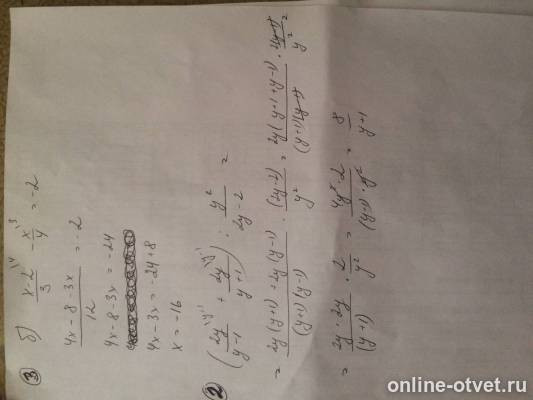 ③ б) (x-2)\4/3 - x\3/4 = -2
(4x-8-3x)/12 = -2
4x-8-3x = -24
4x-3x = -24+8
x = -16
② (2y\y+1/(y-1) + 2y\y-1/(y+1)) : y²/(2y-2) =
= (2y(y+1) + 2y(y-1))/((y+1)(y-1)) · (2y-2)/y² = 2y(y+1+y-1)/((y+1)(y-1)) · 2(y-1)/y²
= (2y · 2y)/(y+1) · 2/y² = (4y² · 2)/((y-1) · y²) = 8/(y+1)
online-otvet.ru